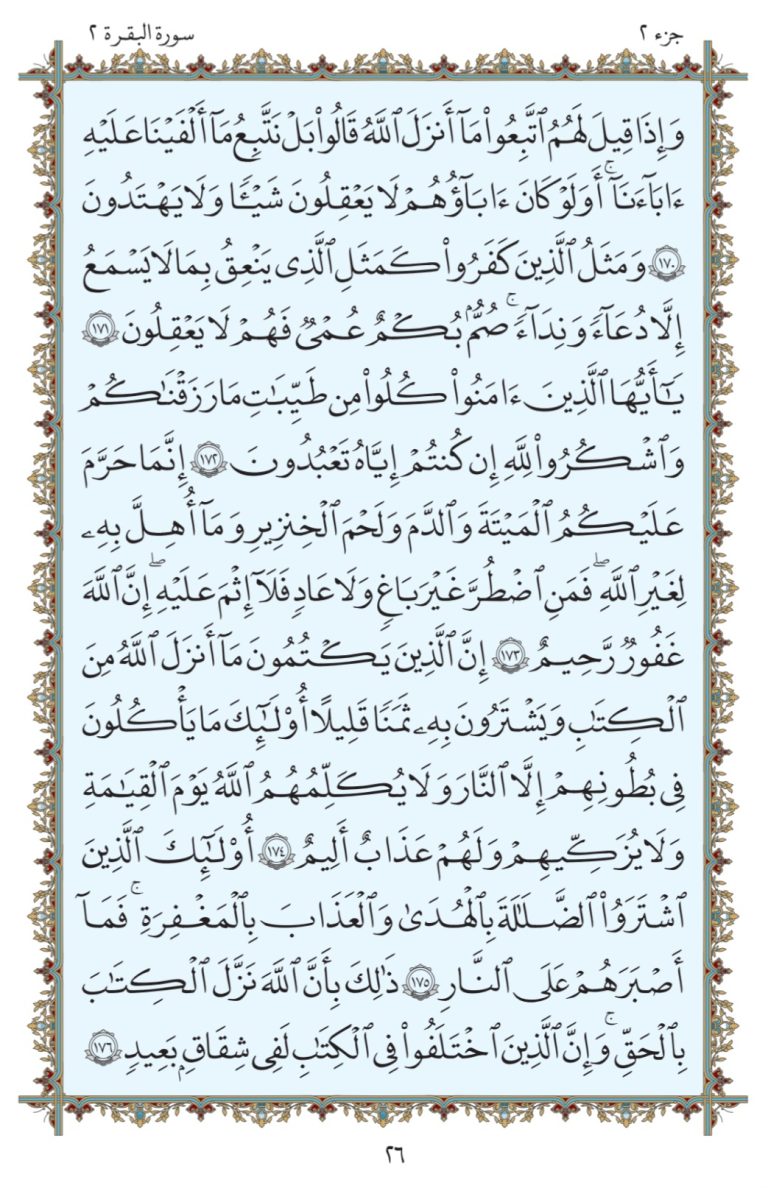 جزء ٢
سورة البقرة ٢
وَإِذَا قِيلَ لَهُمُ ٱتَّبِعُوا۟ مَآ أَنزَلَ ٱللَّهُ قَالُوا۟ بَلْ نَتَّبِعُ مَآ أَلْفَيْنَا عَلَيْهِ
ءَابَآءَنَآ ۚ أَوَلَوْ كَانَ ءَابَآؤُهُمْ لَا يَعْقِلُونَ شَيْـًٔا وَلَا يَهْتَدُونَ
١٧٠ وَمَثَلُ ٱلَّذِينَ كَفَرُوا۟ كَمَثَلِ ٱلَّذِى يَنْعِقُ بِمَا لَا يَسْمَعُ
إِلَّا دُعَآءً وَنِدَآءً ۚ صُمٌّۢ بُكْمٌ عُمْىٌ فَهُمْ لَا يَعْقِلُونَ ١٧١
يَـٰٓأَيُّهَا ٱلَّذِينَ ءَامَنُوا۟ كُلُوا۟ مِن طَيِّبَـٰتِ مَا رَزَقْنَـٰكُمْ
وَٱشْكُرُوا۟ لِلَّهِ إِن كُنتُمْ إِيَّاهُ تَعْبُدُونَ ١٧٢ إِنَّمَا حَرَّمَ
عَلَيْكُمُ ٱلْمَيْتَةَ وَٱلدَّمَ وَلَحْمَ ٱلْخِنزِيرِ وَمَآ أُهِلَّ بِهِۦ
لِغَيْرِ ٱللَّهِ ۖ فَمَنِ ٱضْطُرَّ غَيْرَ بَاغٍ وَلَا عَادٍ فَلَآ إِثْمَ عَلَيْهِ ۚ إِنَّ ٱللَّهَ
غَفُورٌ رَّحِيمٌ ١٧٣ إِنَّ ٱلَّذِينَ يَكْتُمُونَ مَآ أَنزَلَ ٱللَّهُ مِنَ
ٱلْكِتَـٰبِ وَيَشْتَرُونَ بِهِۦ ثَمَنًا قَلِيلًا ۙ أُو۟لَـٰٓئِكَ مَا يَأْكُلُونَ
فِى بُطُونِهِمْ إِلَّا ٱلنَّارَ وَلَا يُكَلِّمُهُمُ ٱللَّهُ يَوْمَ ٱلْقِيَـٰمَةِ
وَلَا يُزَكِّيهِمْ وَلَهُمْ عَذَابٌ أَلِيمٌ ١٧٤ أُو۟لَـٰٓئِكَ ٱلَّذِينَ
ٱشْتَرَوُا۟ ٱلضَّلَـٰلَةَ بِٱلْهُدَىٰ وَٱلْعَذَابَ بِٱلْمَغْفِرَةِ ۚ فَمَآ
أَصْبَرَهُمْ عَلَى ٱلنَّارِ ١٧٥ ذَٰلِكَ بِأَنَّ ٱللَّهَ نَزَّلَ ٱلْكِتَـٰبَ
بِٱلْحَقِّ ۗ وَإِنَّ ٱلَّذِينَ ٱخْتَلَفُوا۟ فِى ٱلْكِتَـٰبِ لَفِى شِقَاقٍۭ بَعِيدٍ ١٧٦
٢٦